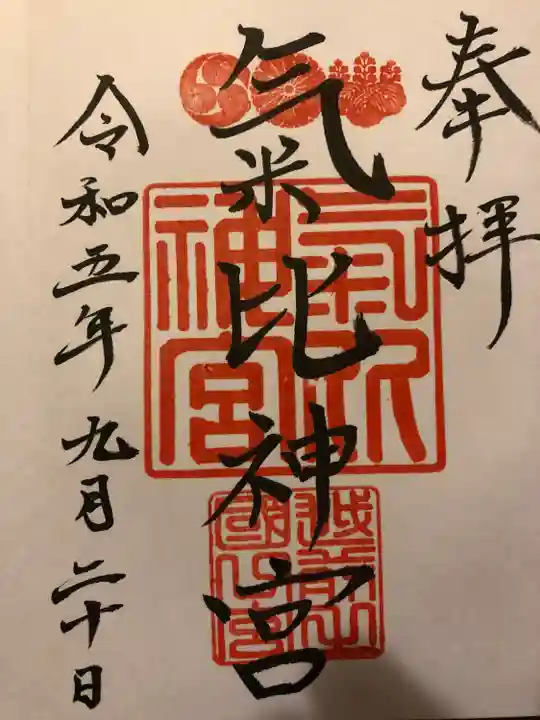 奉拝
氣比神宮
氣比神宮
越前國一之宮
令和五年九月二十日